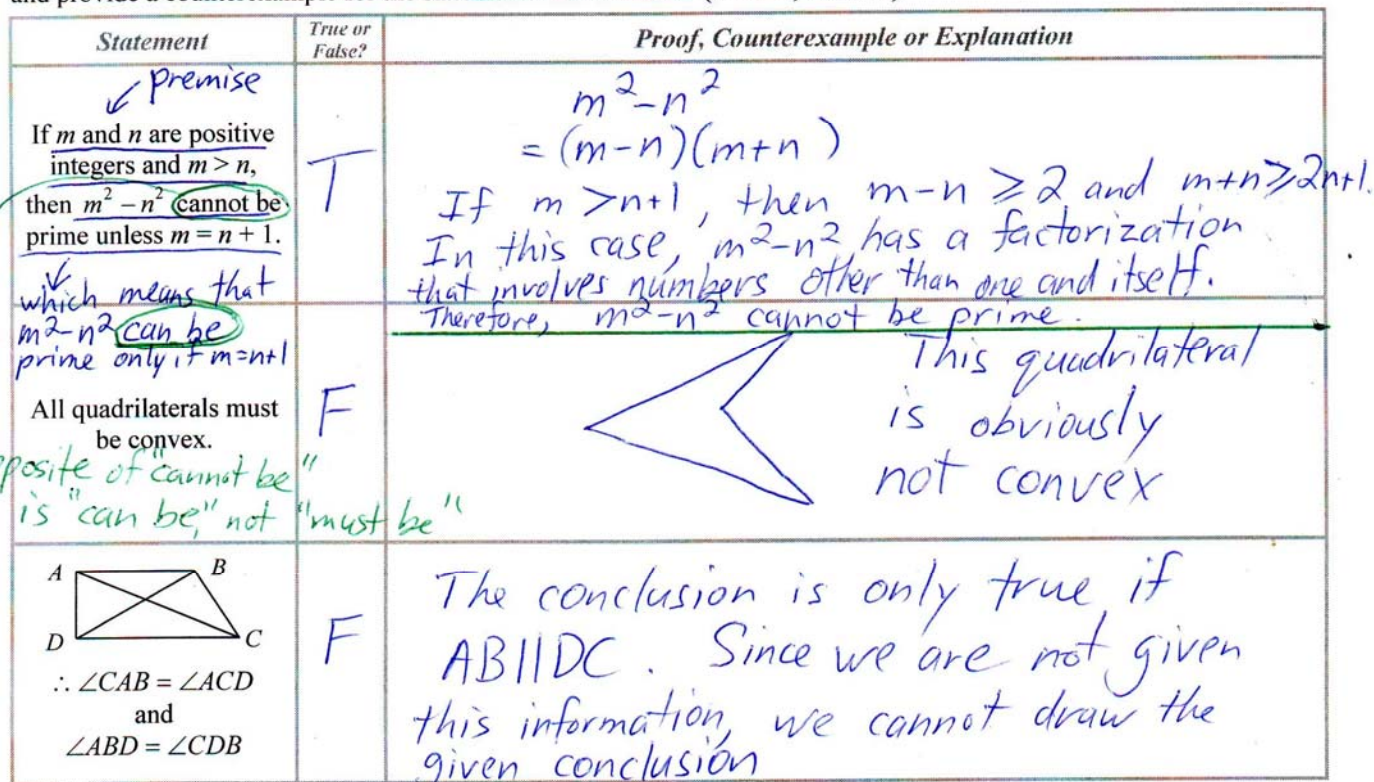 Statement
True or
False?
Proof, Counterexample or Explanation
premise
If m and n are positive
integers and m > n,
then m² – n² cannot be
prime unless m = n + 1.
which means that
m²-n² can be
prime only if m=n+1
T
m²-n²
= (m-n)(m+n)
If m >n+1, then m-n ≥2 and m+n≥2n+1.
In this case, m²-n² has a factorization
that involves numbers other than one and itself.
Therefore, m²-n² cannot be prime.
All quadrilaterals must
be convex.
posite of "cannot be"
is "can be," not "must be"
F
This quadrilateral
is obviously
not convex
A B
D C
∴ ∠CAB = ∠ACD
and
∠ABD = ∠CDB
F
The conclusion is only true if
AB||DC. Since we are not given
this information, we cannot draw the
given conclusion